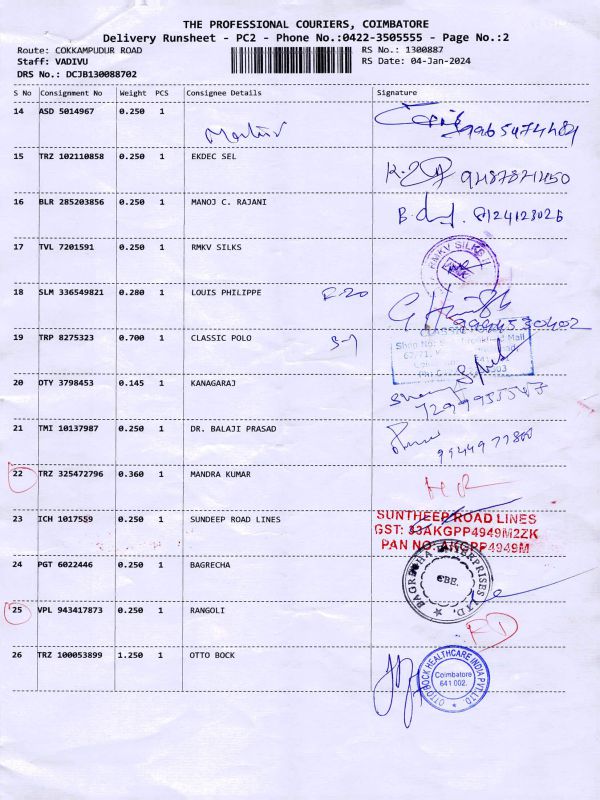 THE PROFESSIONAL COURIERS, COIMBATORE
Delivery Runsheet - PC2 - Phone No.:0422-3505555 - Page No.:2
Route: COKKAMPUDUR ROAD RS No.: 1300887
Staff: VADIVU RS Date: 04-Jan-2024
DRS No.: DCJB130088702
S No Consignment No Weight PCS Consignee Details Signature
14 ASD 5014967 0.250 1
9965474484
15 TRZ 102110858 0.250 1 EKDEC SEL
9487871450
16 BLR 285203856 0.250 1 MANOJ C. RAJANI
8124123026
17 TVL 7201591 0.250 1 RMKV SILKS
RMKV SILKS
18 SLM 336549821 0.280 1 LOUIS PHILIPPE F-20
9994530402
19 TRP 8275323 0.700 1 CLASSIC POLO S-1
CLASSIC POLO
20 OTY 3798453 0.145 1 KANAGARAJ
21 TMI 10137987 0.250 1 DR. BALAJI PRASAD
9944977800
22 TRZ 325472796 0.360 1 MANDRA KUMAR
23 ICH 1017559 0.250 1 SUNDEEP ROAD LINES
SUNTHEEP ROAD LINES
GST: 33AKGPP4949M2ZK
PAN NO: AKGPP4949M
24 PGT 6022446 0.250 1 BAGRECHA
BAGRECHA ENTERPRISES LTD.
CBE.
25 VPL 943417873 0.250 1 RANGOLI
RD
26 TRZ 100053899 1.250 1 OTTO BOCK
OTTO BOCK HEALTHCARE INDIA PVT. LTD
Coimbatore
641 002.